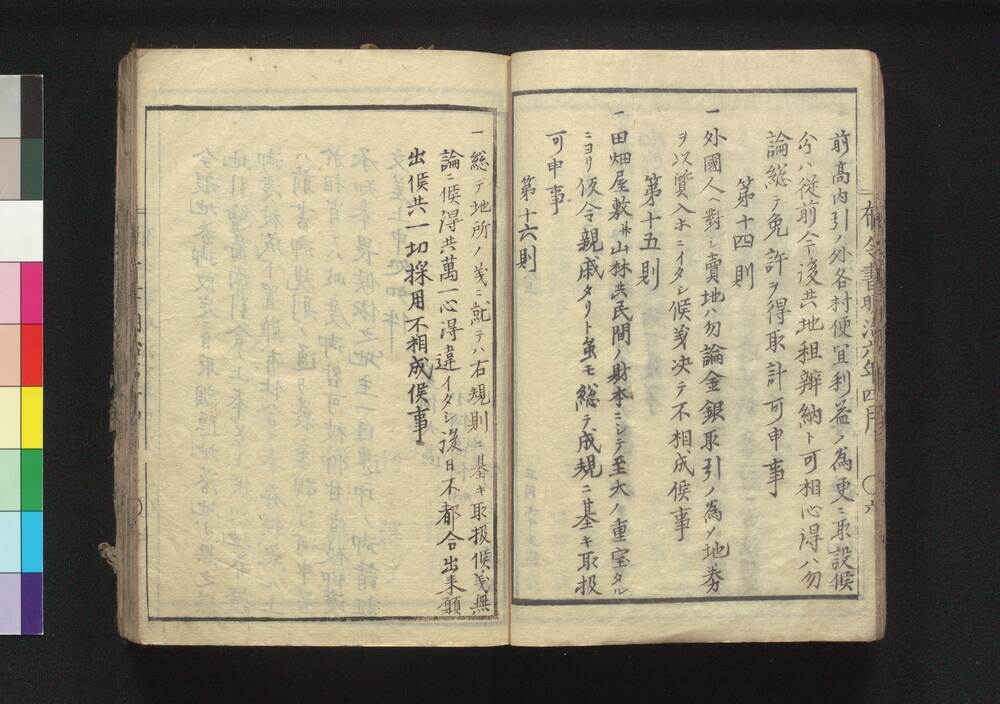 前高内引ノ外各村便宜利益ノ為更ニ取設候
分ハ従前今後共地租辨納ト可相心得ハ勿
論総テ免許ヲ得取計可申事
第十四則
一外國人ヘ對シ賣地ハ勿論金銀取引ノ為メ地券
ヲ以質入ホニイタシ候義决テ不相成候事
第十五則
一田畑屋敷并山林共民間ノ財本ニシテ至大ノ重宝タル
ニヨリ仮令親戚タリト虽モ総テ成規ニ基キ取扱
可申事
第十六則
一総テ地所ノ義ニ就テハ右規則ニ基キ取扱候義無
論ニ候得共萬一心得違イタシ後日不都合出来願
出候共一切採用不相成候事
布令書明治六年四月
〇六